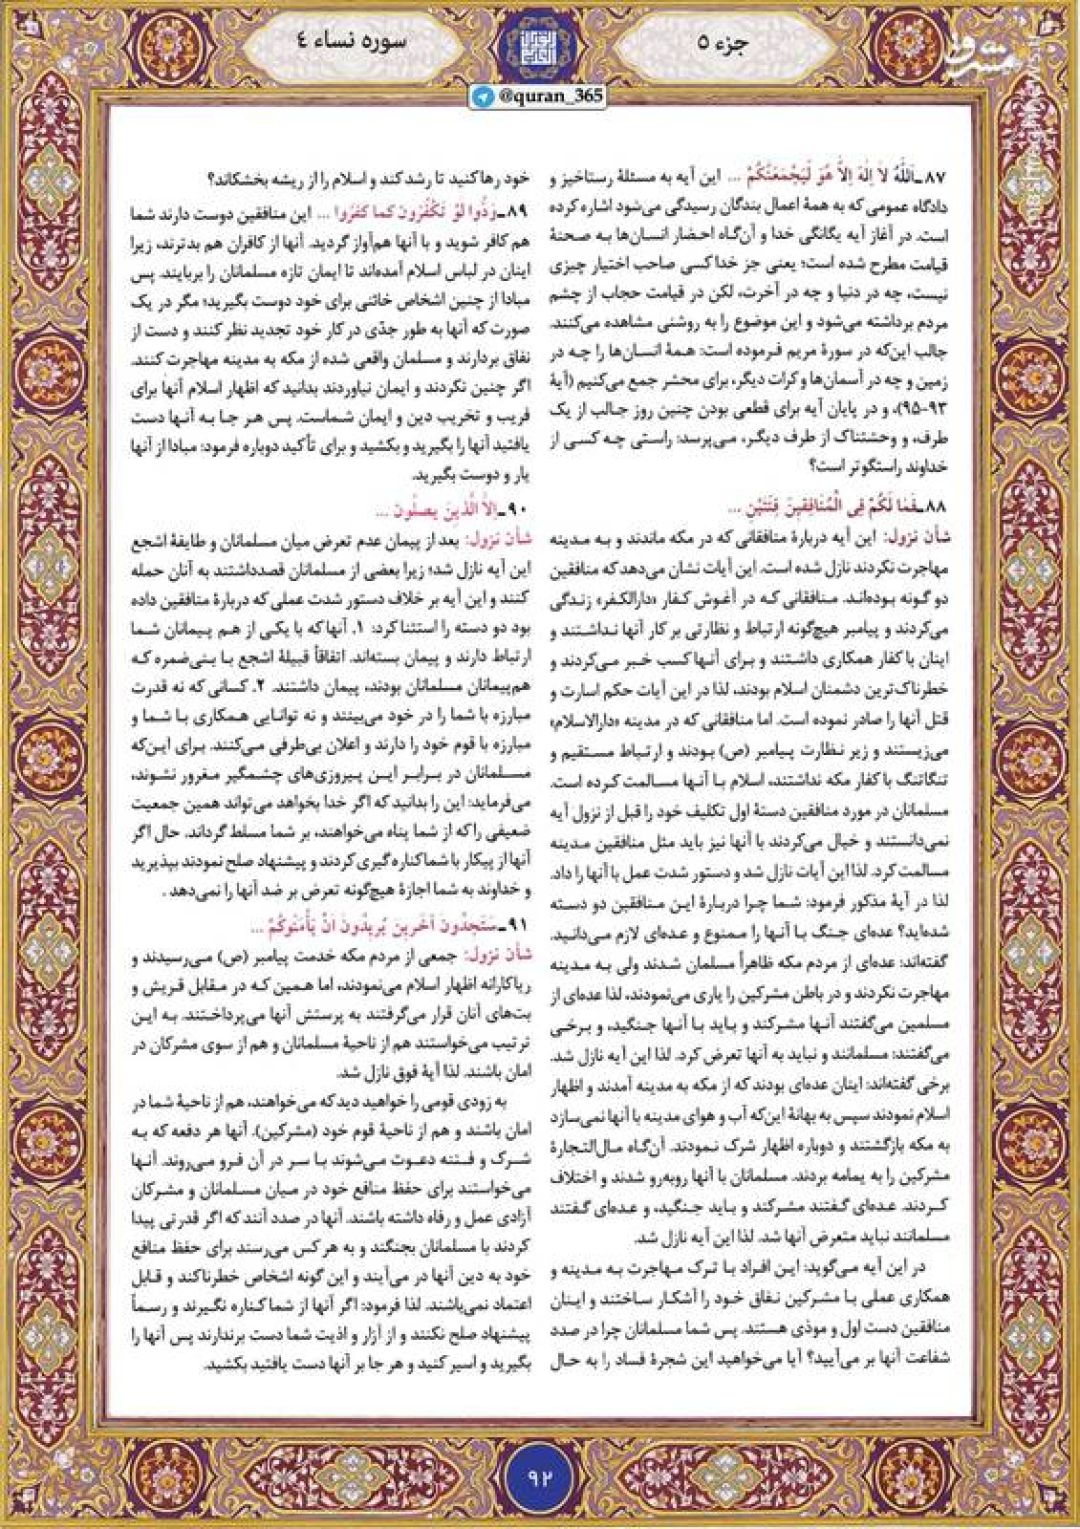 جزء ۵
سوره نساء ۴
@quran_365
مشرق
۸۷ـ اَللّٰهُ لاٰ اِلٰهَ اِلاّٰ هُوَ لَیَجْمَعَنَّکُمْ ... این آیه به مسئلهٔ رستاخیز و
دادگاه عمومی که به همهٔ اعمال بندگان رسیدگی می‌شود اشاره کرده
است. در آغاز آیه یگانگی خدا و آن‌گاه احضار انسان‌ها به صحنهٔ
قیامت مطرح شده است؛ یعنی جز خدا کسی صاحب اختیار چیزی
نیست، چه در دنیا و چه در آخرت، لکن در قیامت حجاب از چشم
مردم برداشته می‌شود و این موضوع را به روشنی مشاهده می‌کنند.
جالب این‌که در سورهٔ مریم فرموده است: همهٔ انسان‌ها را چه در
زمین و چه در آسمان‌ها و کرات دیگر، برای محشر جمع می‌کنیم (آیهٔ
۹۳-۹۵)، و در پایان آیه برای قطعی بودن چنین روز جالب از یک
طرف، و وحشتناک از طرف دیگر، می‌پرسد: راستی چه کسی از
خداوند راستگوتر است؟
۸۸ـ فَمٰا لَکُمْ فِی الْمُنٰافِقینَ فِئَتَیْنِ ...
شأن نزول: این آیه دربارهٔ منافقانی که در مکه ماندند و به مدینه
مهاجرت نکردند نازل شده است. این آیات نشان می‌دهد که منافقین
دو گونه بوده‌اند. منافقانی که در آغوش کفار «دارالکفر» زندگی
می‌کردند و پیامبر هیچ‌گونه ارتباط و نظارتی بر کار آنها نداشتند و
اینان با کفار همکاری داشتند و برای آنها کسب خبر می‌کردند و
خطرناک‌ترین دشمنان اسلام بودند، لذا در این آیات حکم اسارت و
قتل آنها را صادر نموده است. اما منافقانی که در مدینه «دارالاسلام»
می‌زیستند و زیر نظارت پیامبر (ص) بودند و ارتباط مستقیم و
تنگاتنگ با کفار مکه نداشتند، اسلام با آنها مسالمت کرده است.
مسلمانان در مورد منافقین دستهٔ اول تکلیف خود را قبل از نزول آیه
نمی‌دانستند و خیال می‌کردند با آنها نیز باید مثل منافقین مدینه
مسالمت کرد. لذا این آیات نازل شد و دستور شدت عمل با آنها را داد.
لذا در آیهٔ مذکور فرمود: شما چرا دربارهٔ این منافقین دو دسته
شده‌اید؟ عده‌ای جنگ با آنها را ممنوع و عده‌ای لازم می‌دانید.
گفته‌اند: عده‌ای از مردم مکه ظاهراً مسلمان شدند ولی به مدینه
مهاجرت نکردند و در باطن مشرکین را یاری می‌نمودند، لذا عده‌ای از
مسلمین می‌گفتند آنها مشرکند و باید با آنها جنگید، و برخی
می‌گفتند: مسلمانند و نباید به آنها تعرض کرد. لذا این آیه نازل شد.
برخی گفته‌اند: اینان عده‌ای بودند که از مکه به مدینه آمدند و اظهار
اسلام نمودند سپس به بهانهٔ این‌که آب و هوای مدینه با آنها نمی‌سازد
به مکه بازگشتند و دوباره اظهار شرک نمودند. آن‌گاه مال‌التجارهٔ
مشرکین را به یمامه بردند. مسلمانان با آنها روبه‌رو شدند و اختلاف
کردند. عده‌ای گفتند مشرکند و باید جنگید، و عده‌ای گفتند
مسلمانند نباید متعرض آنها شد. لذا این آیه نازل شد.
در این آیه می‌گوید: این افراد با ترک مهاجرت به مدینه و
همکاری عملی با مشرکین نفاق خود را آشکار ساختند و اینان
منافقین دست اول و موذی هستند. پس شما مسلمانان چرا در صدد
شفاعت آنها بر می‌آیید؟ آیا می‌خواهید این شجرهٔ فساد را به حال
خود رها کنید تا رشد کند و اسلام را از ریشه بخشکاند؟
۸۹ـ وَدُّوا لَوْ تَکْفُرُونَ کَمٰا کَفَرُوا ... این منافقین دوست دارند شما
هم کافر شوید و با آنها هم‌آواز گردید. آنها از کافران هم بدترند، زیرا
اینان در لباس اسلام آمده‌اند تا ایمان تازه مسلمانان را بربایند. پس
مبادا از چنین اشخاص خائنی برای خود دوست بگیرید؛ مگر در یک
صورت که آنها به طور جدّی در کار خود تجدید نظر کنند و دست از
نفاق بردارند و مسلمان واقعی شده از مکه به مدینه مهاجرت کنند.
اگر چنین نکردند و ایمان نیاوردند بدانید که اظهار اسلام آنها برای
فریب و تخریب دین و ایمان شماست. پس هر جا به آنها دست
یافتید آنها را بگیرید و بکشید و برای تأکید دوباره فرمود: مبادا از آنها
یار و دوست بگیرید.
۹۰ـ اِلاَّ الَّذینَ یَصِلُونَ ...
شأن نزول: بعد از پیمان عدم تعرض میان مسلمانان و طایفهٔ اشجع
این آیه نازل شد؛ زیرا بعضی از مسلمانان قصد داشتند به آنان حمله
کنند و این آیه بر خلاف دستور شدت عملی که دربارهٔ منافقین داده
بود دو دسته را استثنا کرد: ۱. آنها که با یکی از هم پیمانان شما
ارتباط دارند و پیمان بسته‌اند. اتفاقاً قبیلهٔ اشجع با بنی‌ضمره که
هم‌پیمانان مسلمانان بودند، پیمان داشتند. ۲. کسانی که نه قدرت
مبارزه با شما را در خود می‌بینند و نه توانایی همکاری با شما و
مبارزه با قوم خود را دارند و اعلان بی‌طرفی می‌کنند. برای این‌که
مسلمانان در برابر این پیروزی‌های چشمگیر مغرور نشوند،
می‌فرماید: این را بدانید که اگر خدا بخواهد می‌تواند همین جمعیت
ضعیفی را که از شما پناه می‌خواهند، بر شما مسلط گرداند. حال اگر
آنها از پیکار با شما کناره گیری کردند و پیشنهاد صلح نمودند بپذیرید
و خداوند به شما اجازهٔ هیچ‌گونه تعرض بر ضد آنها را نمی‌دهد .
۹۱ـ سَتَجِدُونَ آخَرینَ یُریدُونَ اَنْ یَأْمَنُوکُمْ ...
شأن نزول: جمعی از مردم مکه خدمت پیامبر (ص) می‌رسیدند و
ریاکارانه اظهار اسلام می‌نمودند، اما همین که در مقابل قریش و
بت‌های آنان قرار می‌گرفتند به پرستش آنها می‌پرداختند. به این
ترتیب می‌خواستند هم از ناحیهٔ مسلمانان و هم از سوی مشرکان در
امان باشند. لذا آیهٔ فوق نازل شد.
به زودی قومی را خواهید دید که می‌خواهند، هم از ناحیهٔ شما در
امان باشند و هم از ناحیهٔ قوم خود (مشرکین). آنها هر دفعه که به
شرک و فتنه دعوت می‌شوند با سر در آن فرو می‌روند. آنها
می‌خواستند برای حفظ منافع خود در میان مسلمانان و مشرکان
آزادی عمل و رفاه داشته باشند. آنها در صدد آنند که اگر قدرتی پیدا
کردند با مسلمانان بجنگند و به هر کس می‌رسند برای حفظ منافع
خود به دین آنها در می‌آیند و این گونه اشخاص خطرناکند و قابل
اعتماد نمی‌باشند. لذا فرمود: اگر آنها از شما کناره نگیرند و رسماً
پیشنهاد صلح نکنند و از آزار و اذیت شما دست برندارند پس آنها را
بگیرید و اسیر کنید و هر جا بر آنها دست یافتید بکشید.
۹۲